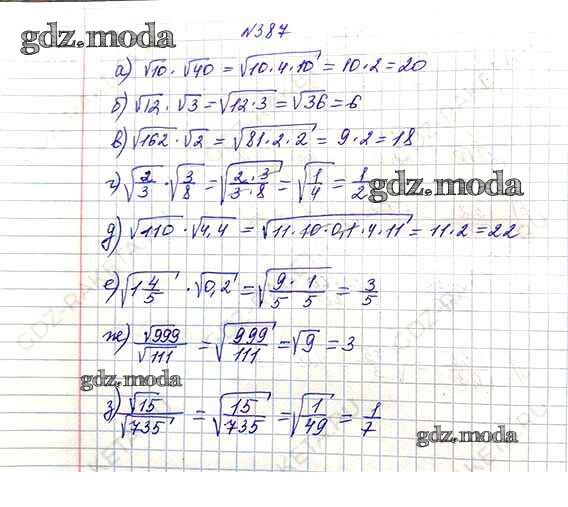 gdz.moda
№387
а) √10 · √40 = √(10·4·10) = 10·2 = 20
б) √12 · √3 = √(12·3) = √36 = 6
в) √162 · √2 = √(81·2·2) = 9·2 = 18
г) √(2/3) · √(3/8) = √((2·3)/(3·8)) = √(1/4) = 1/2
gdz.moda
д) √110 · √4,4 = √(11·10·0,1·4·11) = 11·2 = 22
е) √(1 4/5) · √0,2 = √(9/5 · 1/5) = 3/5
ж) √999/√111 = √(999/111) = √9 = 3
gdz.moda
з) √15/√735 = √(15/735) = √(1/49) = 1/7
gdz.moda